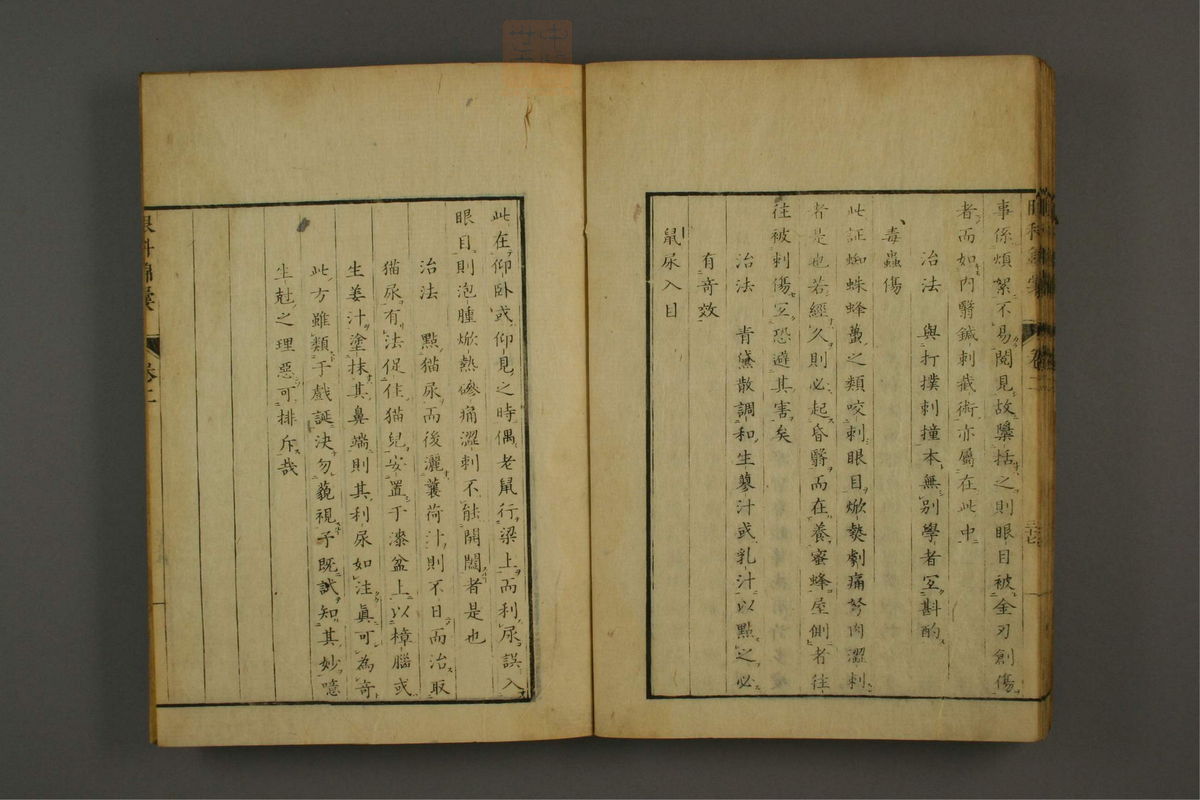 事係煩絮不易閱見故檃括之則眼目被金刃創傷
者而如內翳鍼刺截術亦屬在此中
治法　與打撲刺撞本無別學者宜斟酌
毒蟲傷
此証蜘蛛蜂蠆之類咬刺眼目焮熱劇痛努肉澀刺
者是也若經久則必起昏翳而在養蜜蜂屋側者往
往被刺傷宜恐避其害矣
治法　青黛散調和生蓼汁或乳汁以點之必
有奇效
鼠尿入目
此在仰臥或仰見之時偶老鼠行梁上而利尿誤入
眼目則泡腫焮熱磣痛澀刺不能開闔者是也
治法　點猫尿而後灑蘘荷汁則不日而治取
猫尿有法促住猫兒安置于漆盆上以樟腦或
生姜汁塗抹其鼻端則其利尿如注眞可為奇
此方雖類于戲誕決勿藐視予既試知其妙噫
生尅之理惡可排斥哉
眼科錦囊
卷二